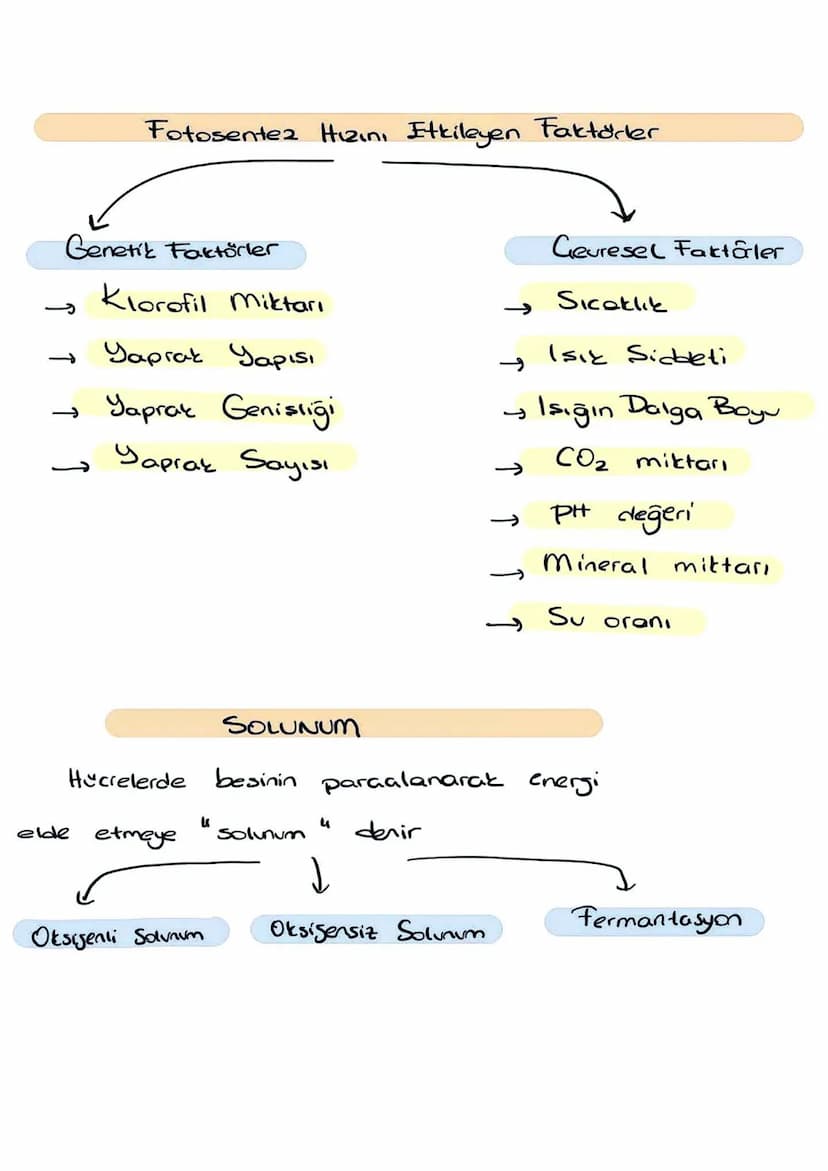 Fotosentez Hızını Etkileyen Faktörler
Genetik Faktörler
→ Klorofil Miktarı
→ Yaprak Yapısı
→ Yaprak Genişliği
→ Yaprak Sayısı
Çevresel Faktörler
→ Sıcaklık
→ Işık Şiddeti
→ Işığın Dalga Boyu
→ CO₂ miktarı
→ PH değeri
→ Mineral miktarı
→ Su oranı
SOLUNUM
Hücrelerde besinin parçalanarak energi
elde etmeye "solunum" denir
Oksijenli Solunum
Oksijensiz Solunum
Fermantasyon